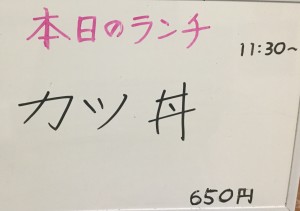 本日のランチ
11:30~
カツ丼
650円